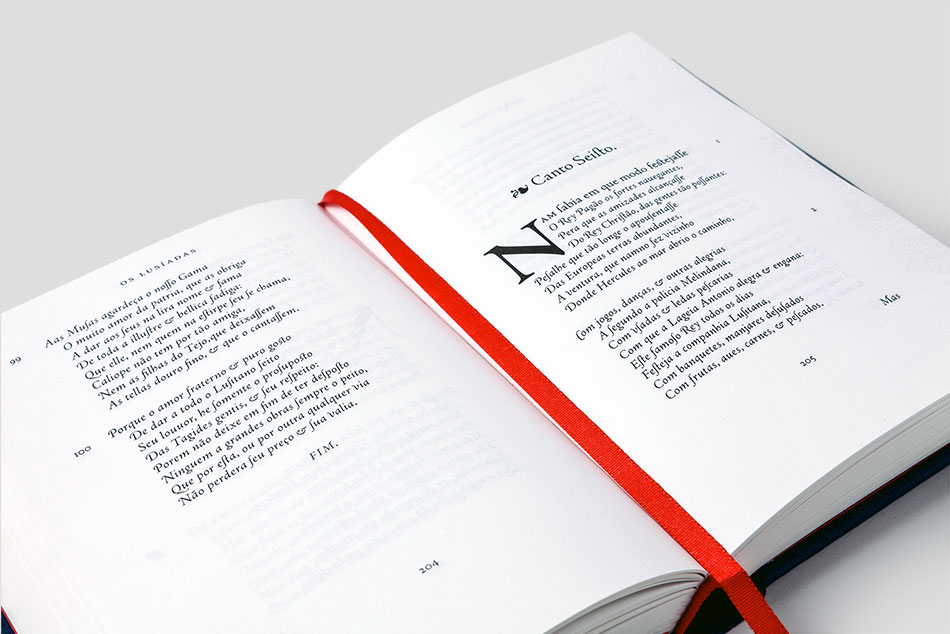 OS LUSÍADAS
99
Aas Musas agardeça o nosso Gama
O muito amor da patria, que as obriga
A dar aos seus na lira nome & fama
De toda a illustre & bellica fadiga:
Que elle, nem quem na estirpe seu se chama,
Caliope não tem por tão amiga,
Nem as filhas do Tejo, que deixassem
As tellas douro fino, & que o cantassem.
100
Porque o amor fraterno & puro gosto
De dar a todo o Lusitano feito
Seu louuor, he somente o prosuposto
Das Tagides gentis, & seu respeito:
Porem não deixe em fim de ter desposto
Ninguem a grandes obras sempre o peito,
Que por esta, ou por outra qualquer via
Não perdera seu preço & sua valia.
FIM.
204
Canto Seisto.
1
NAM sabia em que modo festejasse
O Rey Pagão os fortes nauegantes,
Pera que as amizades alcançasse
Do Rey Christão, das gentes tão possantes:
Pesalhe que tão longe o apousentasse
Das Europeas terras abundantes,
A ventura, que namno fez vizinho
Donde Hercules ao mar abrio o caminho.
2
Com jogos, danças, & outras alegrias
A segundo a policia Melindana,
Com vsadas & ledas pescarias
Com que a Lageia Antonio alegra & engana:
Este famoso Rey todos os dias
Festeja a companhia Lusitana,
Com banquetes, manjares desusados
Com frutas, aues, carnes, & pescados.
Mas
205